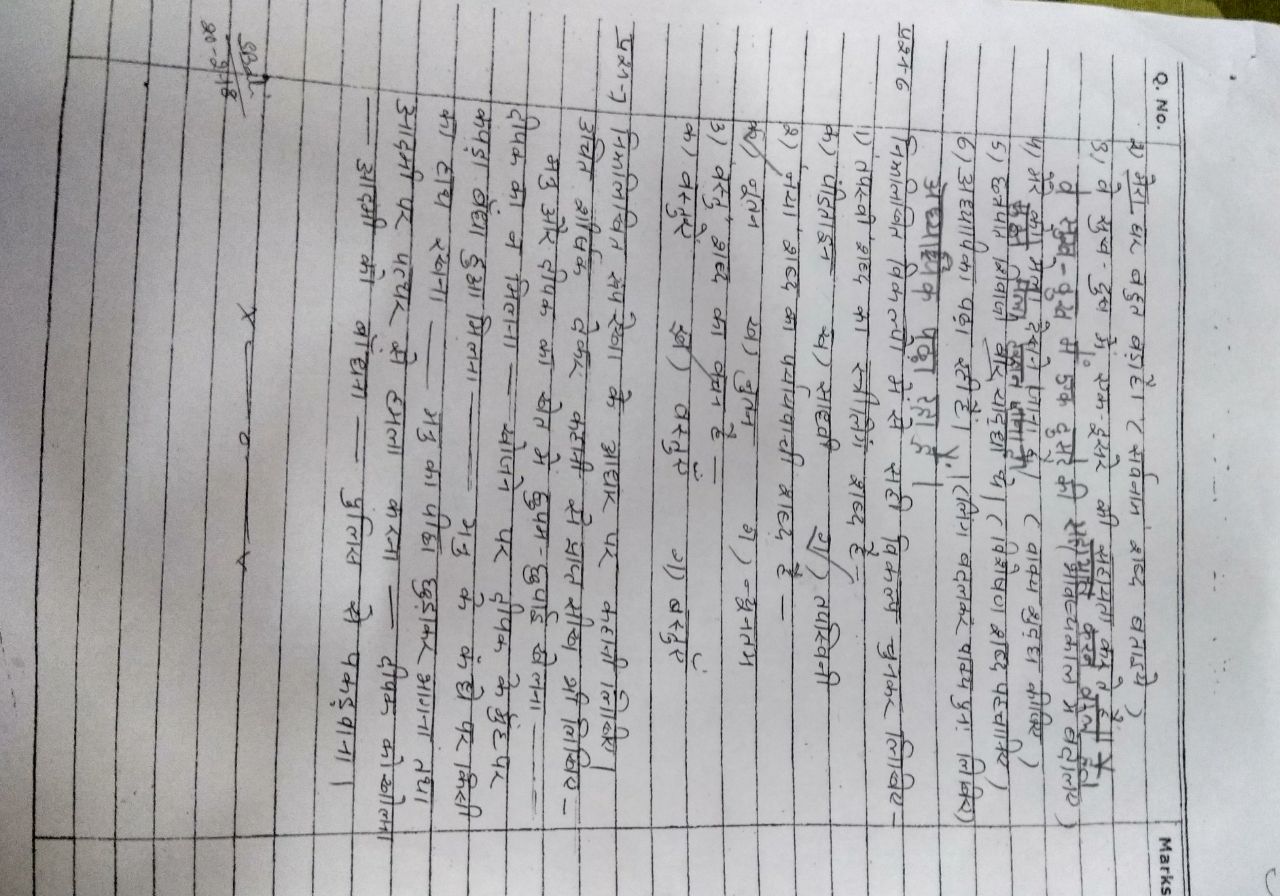 Q. No.
Marks
2) मेरा घर बहुत बड़ा है। (सर्वनाम शब्द बताइये)
3) वे सुख-दुख में एक दूसरे की सहायता करते हैं।
वे सुख-दुख में एक दूसरे की
भविष्यकाल में बदलिए)
4) मेरे को मेला देखने जाना है। (वाक्य शुद्ध कीजिए)
5) छत्रपति शिवाजी वीर योद्धा थे। (विशेषण शब्द पहचानिए)
6) अध्यापिका पढ़ा रही है। (लिंग बदलकर वाक्य पुनः लिखिए)
अध्यापक पढ़ा रहा है।
प्रश्न-6 निम्नलिखित विकल्पों में से सही विकल्प चुनकर लिखिए -
1) 'तपस्वी' शब्द का स्त्रीलिंग शब्द है -
क) पंडिताइन ख) साहसी ग) तपस्विनी
2) 'नया' शब्द का पर्यायवाची शब्द है -
क) नूतन ख) नुतन ग) न्यूनतम
3) 'वस्तु' शब्द का वचन है -
क) वस्तुए ख) वस्तुएँ ग) वस्तुएं
प्रश्न-7 निम्नलिखित रूपरेखा के आधार पर कहानी लिखिए।
उचित शीर्षक देकर कहानी से प्राप्त सीख भी लिखिए -
मधु और दीपक का खेत में छुपम-छुपाई खेलना ——
दीपक का न मिलना —— खोजने पर दीपक के मुंह पर
कपड़ा बंधा हुआ मिलना —— मधु के कंधे पर किसी
का हाथ रखना —— मधु का पीछा छुड़ाकर भागना तथा
आदमी पर पत्थर से हमला करना —— दीपक को खोलना
—— आदमी को बाँधना —— पुलिस से पकड़वाना।
x —— o —— x